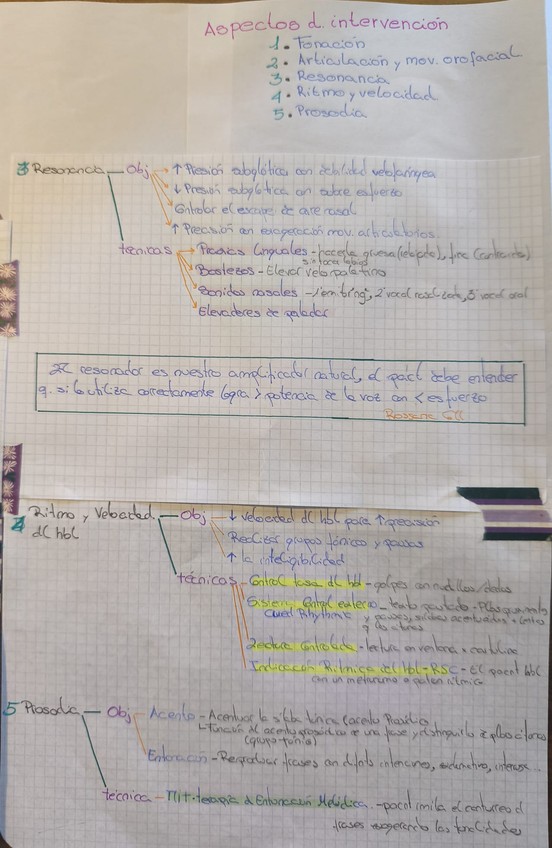 Aspectos d. intervención
1. Fonación
2. Articulación y mov. orofacial
3. Resonancia
4. Ritmo y velocidad
5. Prosodia
3 Resonancia — Obj → ↑ Presión subglótica con debilidad velofaríngea
↓ Presión subglótica con sobre esfuerzo
Controlar el escape de aire nasal
↑ Precisión con exageración mov. articulatorios
técnicas → Praxias linguales - hacerla gruesa (relajada), fina (contraerla)
sin tocar labios
Bostezos - Elevar velo palatino
Sonidos nasales -
Elevadores de paladar
El resonador es nuestro amplificador natural, el pact debe entender
q. si lo utiliza correctamente logra > potencia de la voz con < esfuerzo
4 Ritmo y Velocidad — Obj → ↓ velocidad dl hbl para ↑ precisión
dl hbl
Realizar grupos fónicos y pausas
↑ la inteligibilidad
técnicas Control tasa dl hbl - golpes con nudillos/dedos
Sistem. Control externo - texto pautado -
Cued Rhythmic y pausas, sílabas acentuadas
Lectura controlada - lectura en ventana
Indicación Rítmica del hbl - RSC - El pacnt hbl
con un metrónomo o patrón rítmico
5 Prosodia — Obj - Acento - Acentuar la sílaba tónica
Función dl acento
Entonación - Reproducir frases con difnts intenciones,
técnica - MIT. terapia d Entonación Melódica - pacnt imita el contorno d
frases exagerando las tonalidades